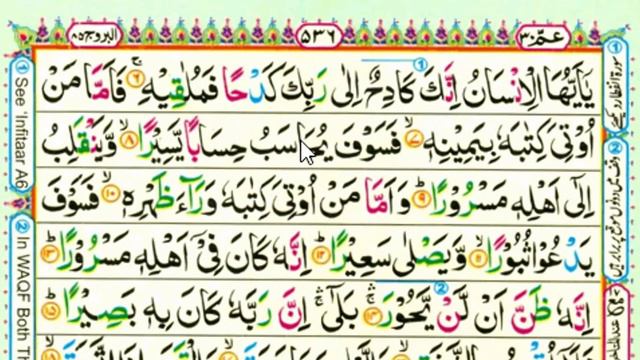 عم ٣٠
٥٣٦
البروج ٨٥
يٰۤاَيُّهَا الْاِنْسَانُ اِنَّكَ كَادِحٌ اِلٰى رَبِّكَ كَدْحًا فَمُلٰقِيْهِ ۚ‏ ﴿۶﴾ فَاَمَّا مَنْ
اُوْتِىَ كِتٰبَهٗ بِيَمِيْنِهٖ ۙ‏ ﴿۷﴾ فَسَوْفَ يُحَاسَبُ حِسَابًا يَّسِيْرًا ۙ‏ ﴿۸﴾ وَّيَنْقَلِبُ
اِلٰٓى اَهْلِهٖ مَسْرُوْرًا ؕ‏ ﴿۹﴾ وَاَمَّا مَنْ اُوْتِىَ كِتٰبَهٗ وَرَآءَ ظَهْرِهٖ ۙ‏ ﴿۱۰﴾ فَسَوْفَ
يَدْعُوْا ثُبُوْرًا ۙ‏ ﴿۱۱﴾ وَّيَصْلٰى سَعِيْرًا ؕ‏ ﴿۱۲﴾ اِنَّهٗ كَانَ فِىْٓ اَهْلِهٖ مَسْرُوْرًا ؕ‏ ﴿۱۳﴾
اِنَّهٗ ظَنَّ اَنْ لَّنْ يَّحُوْرَ ۛۚ‏ ﴿۱۴﴾ بَلٰٓى ۛۚ اِنَّ رَبَّهٗ كَانَ بِهٖ بَصِيْرًا ؕ‏ ﴿۱۵﴾
① See 'Infitaar A6
② In WAQF Both Th